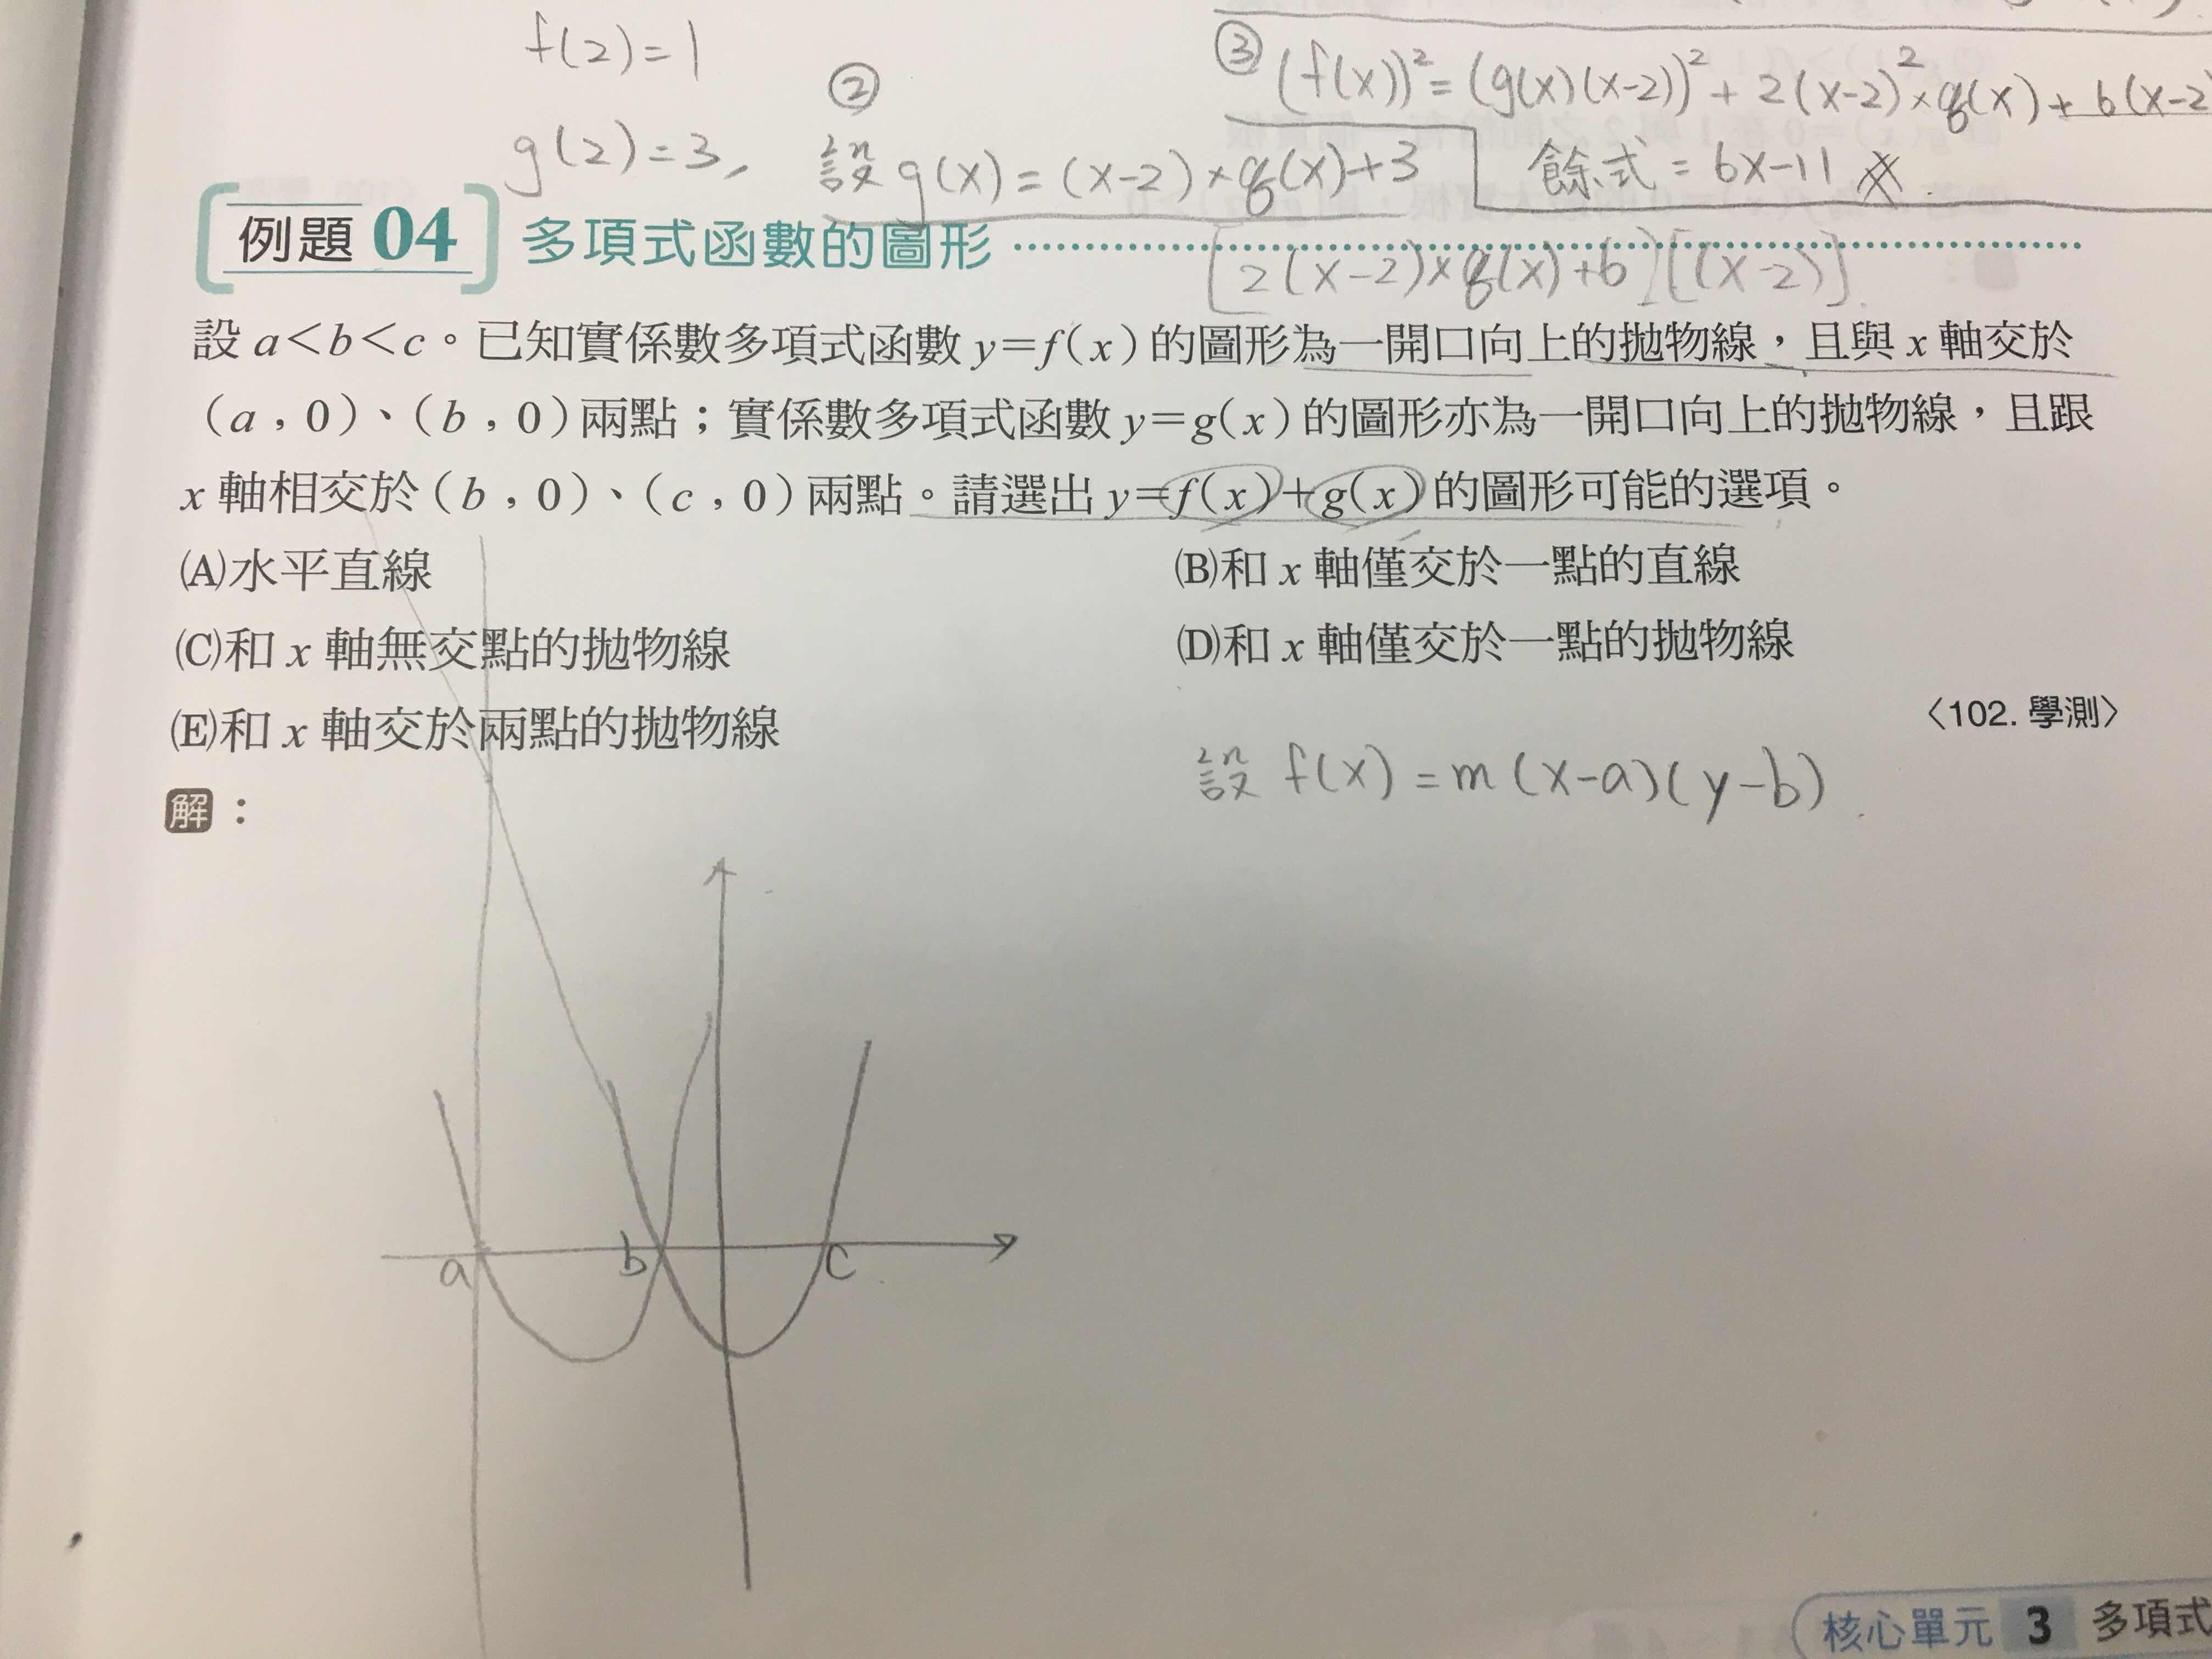 f(2)=1
g(2)=3,
② 設 g(x)=(x-2)×q(x)+3
③ (f(x))²=(g(x)(x-2))²+2(x-2)²×q(x)+6(x-2)
餘式=6x-11
例題 04 多項式函數的圖形
[2(x-2)×q(x)+6][(x-2)]
設 a<b<c。已知實係數多項式函數 y=f(x)的圖形為一開口向上的拋物線,且與 x 軸交於
(a,0)、(b,0)兩點;實係數多項式函數 y=g(x)的圖形亦為一開口向上的拋物線,且跟
x 軸相交於(b,0)、(c,0)兩點。請選出 y=f(x)+g(x)的圖形可能的選項。
(A)水平直線 (B)和 x 軸僅交於一點的直線
(C)和 x 軸無交點的拋物線 (D)和 x 軸僅交於一點的拋物線
(E)和 x 軸交於兩點的拋物線
〈102. 學測〉
設 f(x)=m(x-a)(y-b)
解:
a b c
核心單元 3 多項式